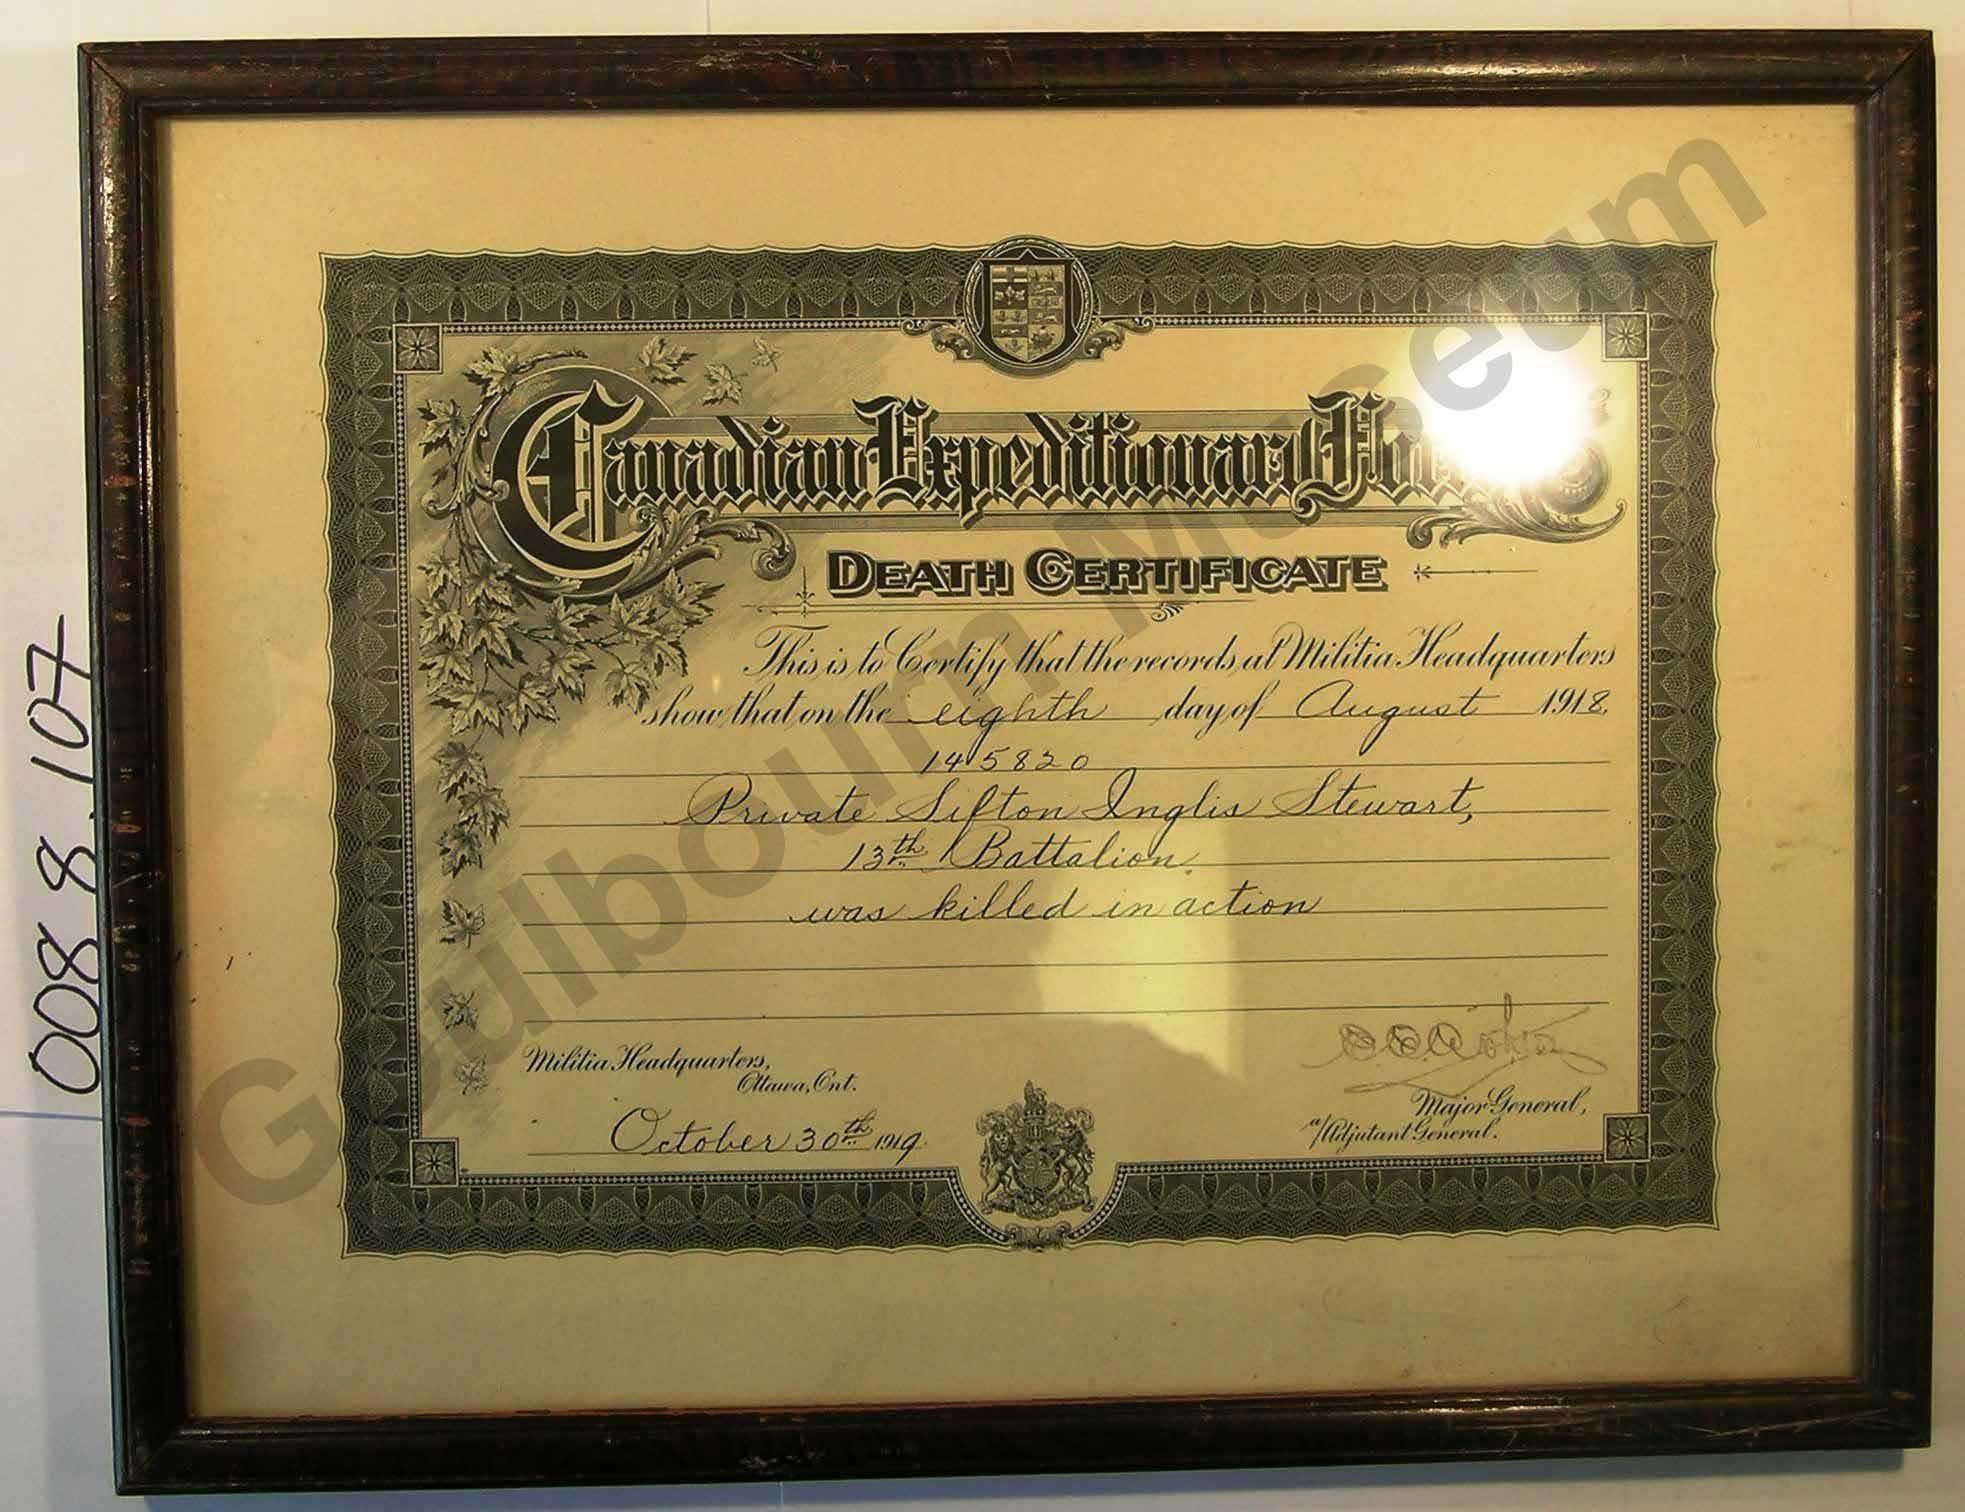 Canadian Expeditionary Force
DEATH CERTIFICATE
This is to Certify that the records at Militia Headquarters
show that on the eighth day of August 1918,
145820
Private Sifton Inglis Stewart,
13th Battalion
was killed in action
Militia Headquarters,
Ottawa, Ont.
October 30th 1919.
Major General,
a/Adjutant General.
008.8.107
Goulbourn Museum